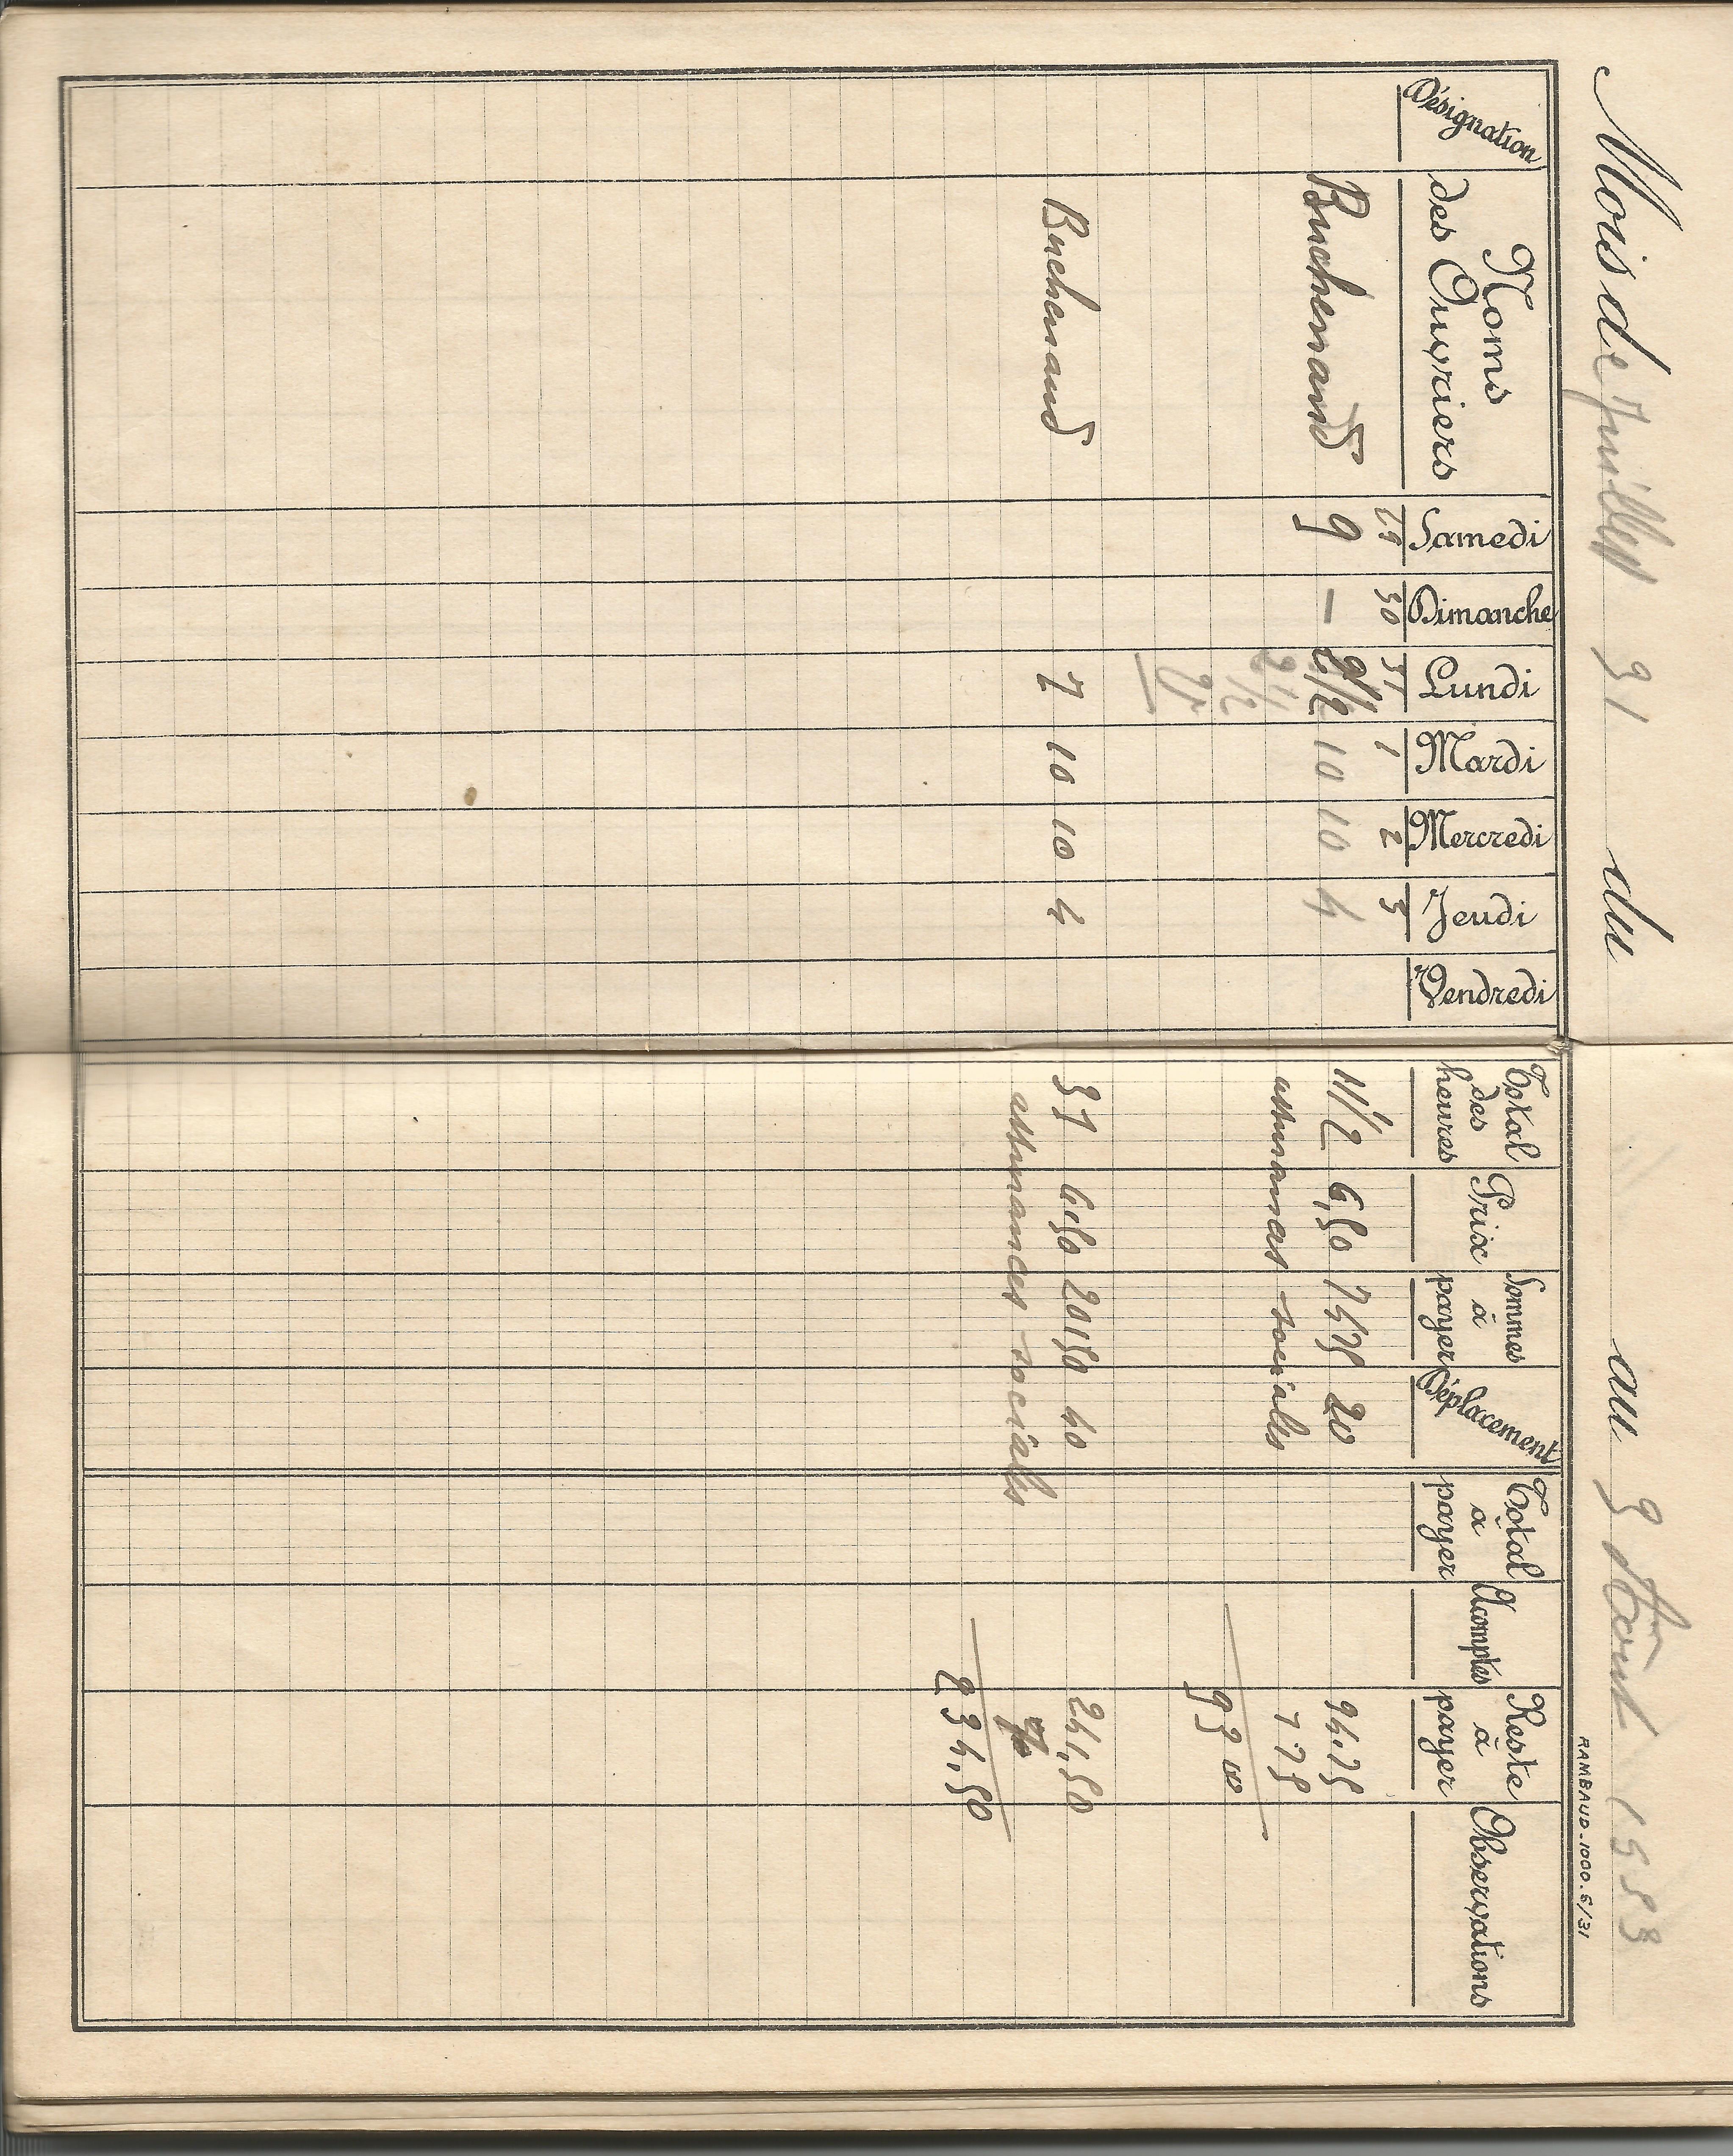 Mois de Juillet 31 du au 3 Août 1933
RAMBAUD-1000.6/31
Désignation Noms des Ouvriers Samedi Dimanche Lundi Mardi Mercredi Jeudi Vendredi Total des heures Prix Sommes à payer Déplacement Total à payer Acomptes Reste à payer Observations
29 30 31 1 2 3
Buchenaud 9 — 2 1/2 10 10 4 11 1/2 6,50 74,75 20 94,75
2 1/2
assurances sociales 1.75
93 00
Buchenaud 7 10 10 4 31 6,50 201,50 40 241,50
assurances sociales 7
234,50